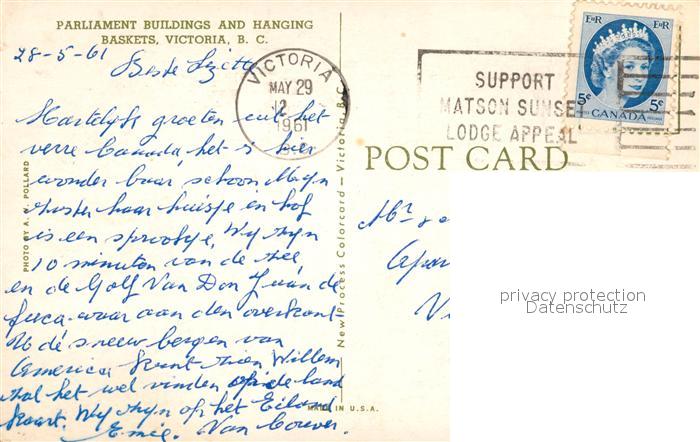 PARLIAMENT BUILDINGS AND HANGING
BASKETS, VICTORIA, B. C.
28-5-61
Beste Lizette
Hartelijk groeten uit het
verre Canada, het is hier
wonder baar schoon Mijn
zuster haar huisje en hof
is een sprookje, Wij zijn
10 minuten van de zee
en de Golf Van Don Juan de
fuca waar aan den overkant
de sneeuw bergen van
America kunt zien Willem
zal het wel vinden op de land
kaart. Wij zijn op het Eiland
Van Couver.
PHOTO BY A. V. POLLARD
New Process Colorcard — Victoria, B.C.
MADE IN U.S.A.
VICTORIA
MAY 29
12
1961
SUPPORT
MATSON SUNSET
LODGE APPEAL
EIIR EIIR
5¢ 5¢
CANADA
POST CARD
Mr &
Apar
Vi
privacy protection
Datenschutz